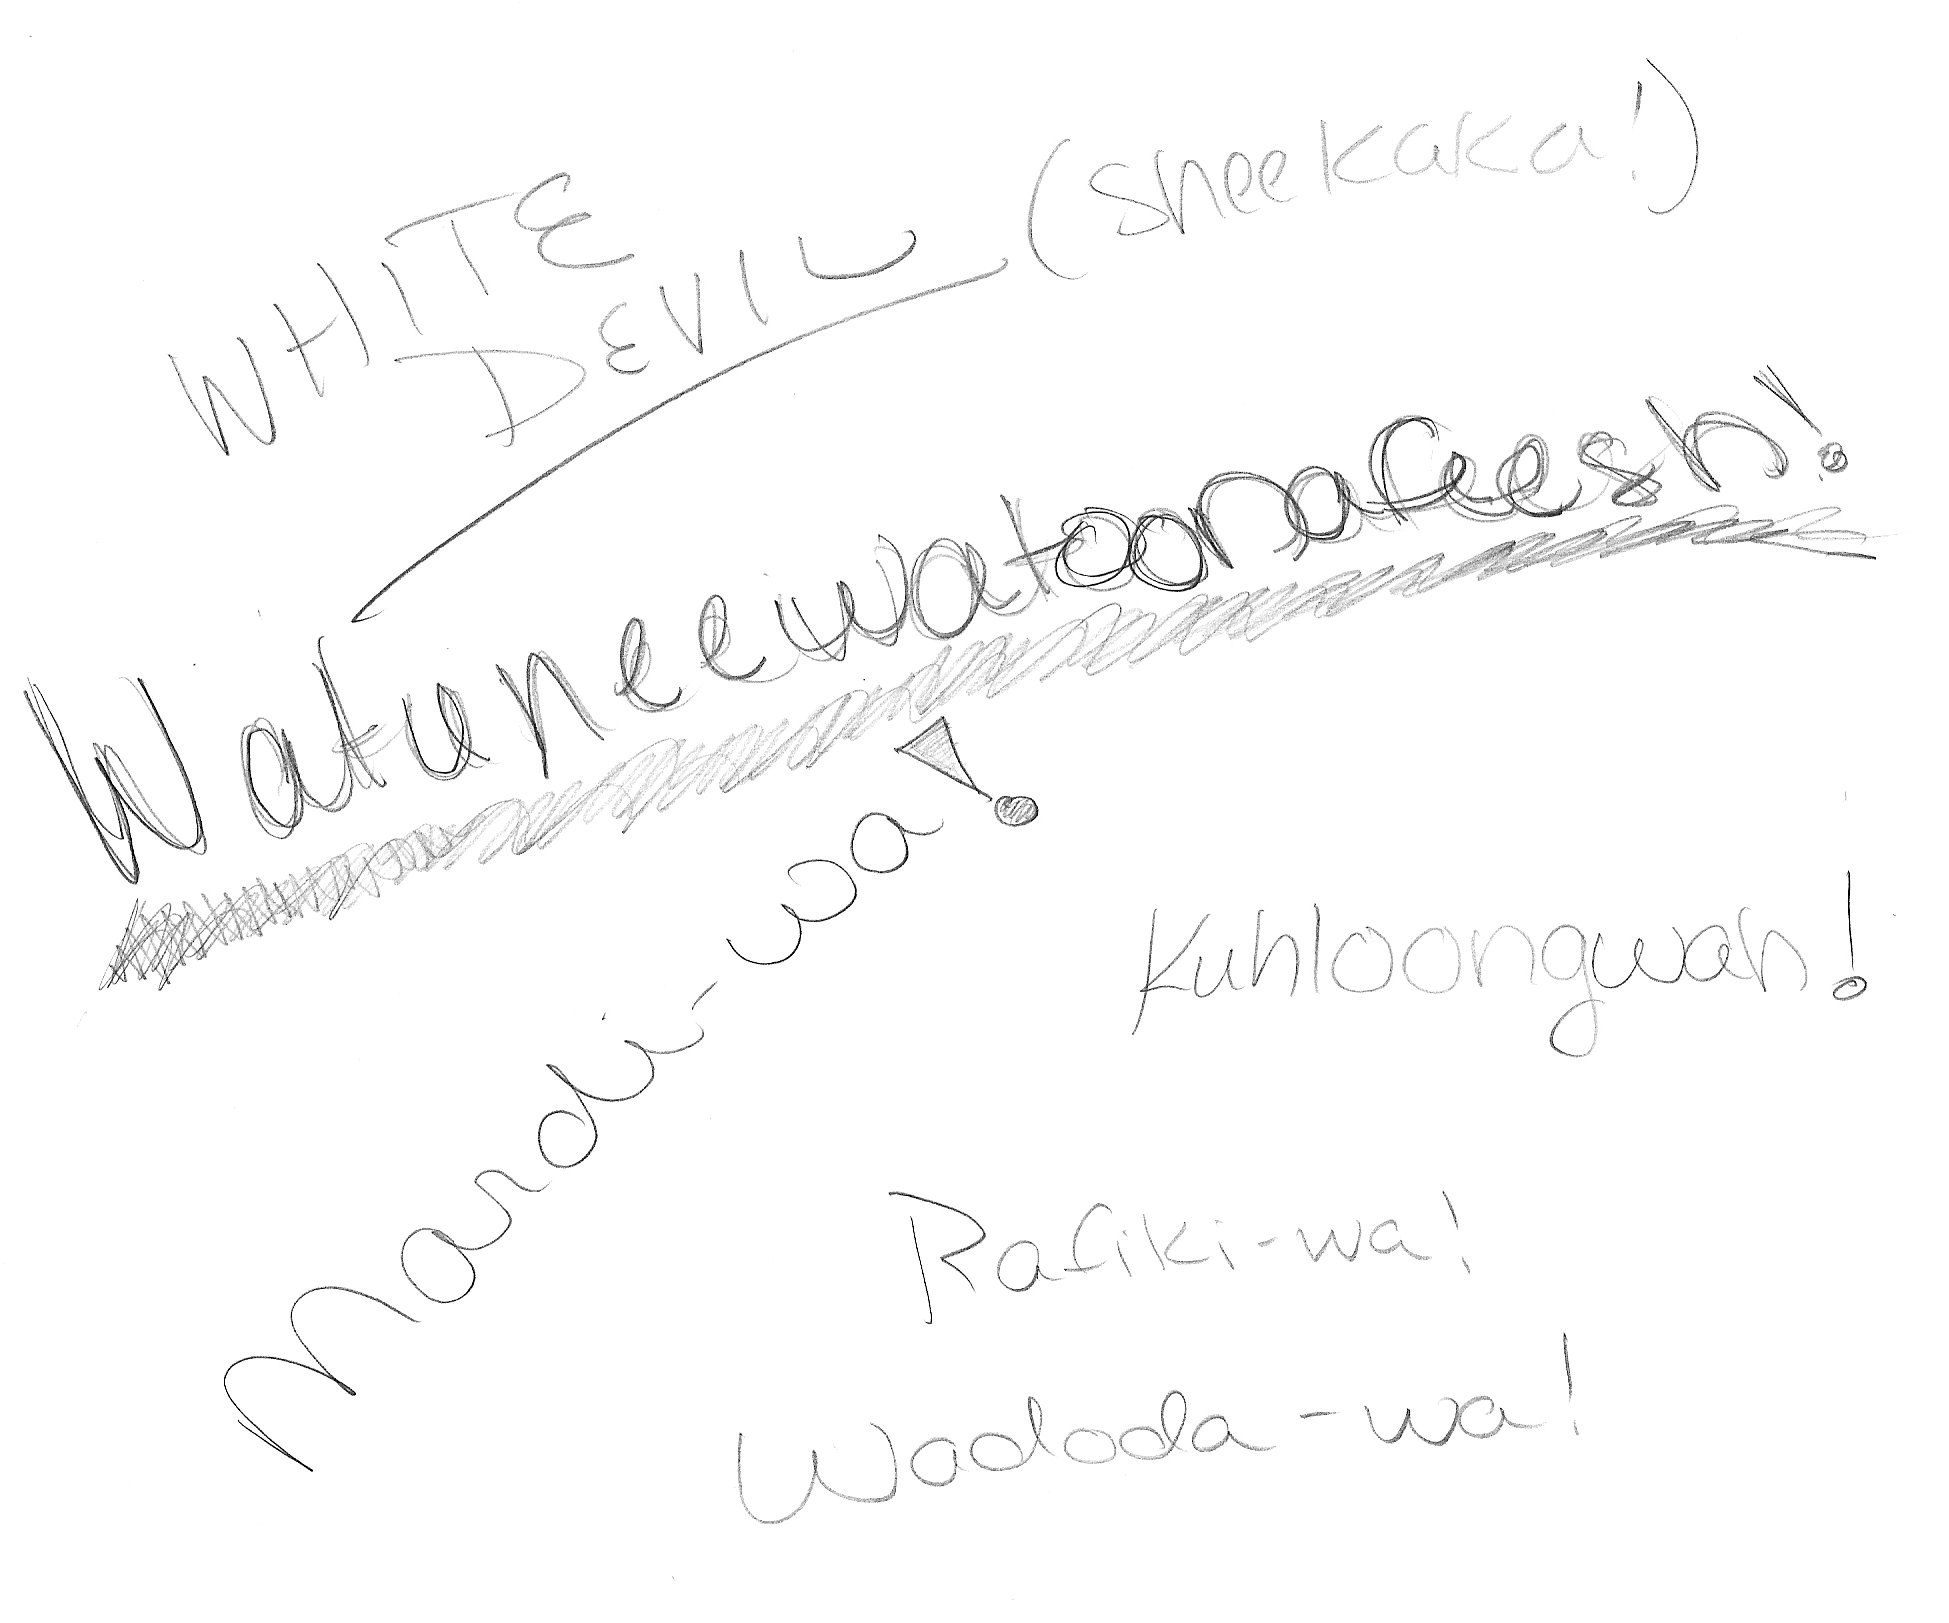 WHITE
DEVIL (sheekaka!)
Watuneeiwatoonafeesh!
Mardii-wa!
Kuhloongwah!
Rafiki-wa!
Wadoda-wa!